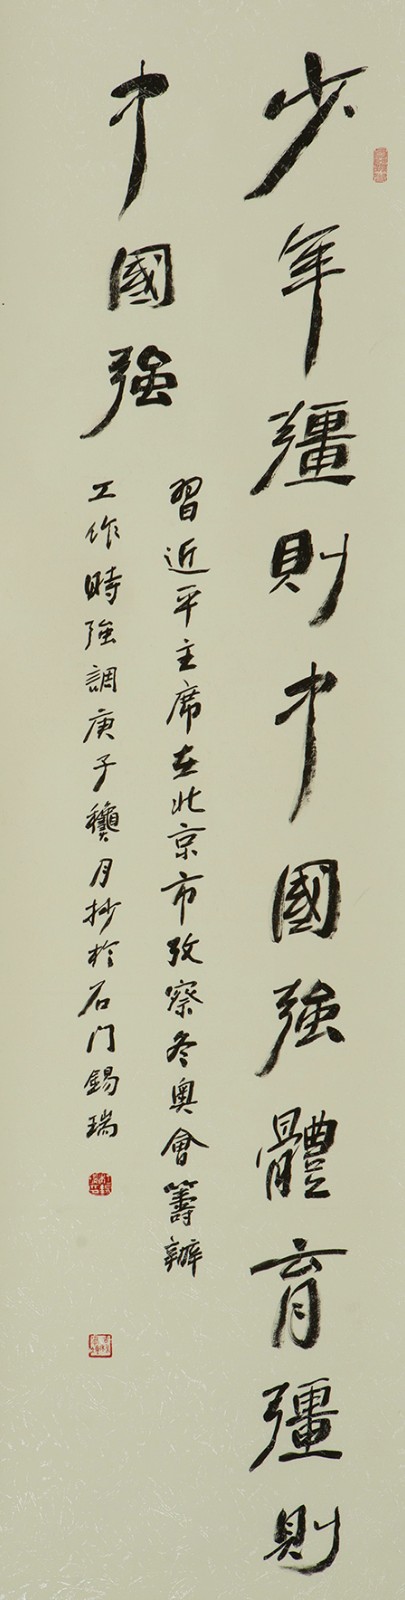 少年彊則中國強體育彊則
中國強
習近平主席在北京市攷察冬奧會籌辦
工作時強調庚子龝月抄於石门錫瑞